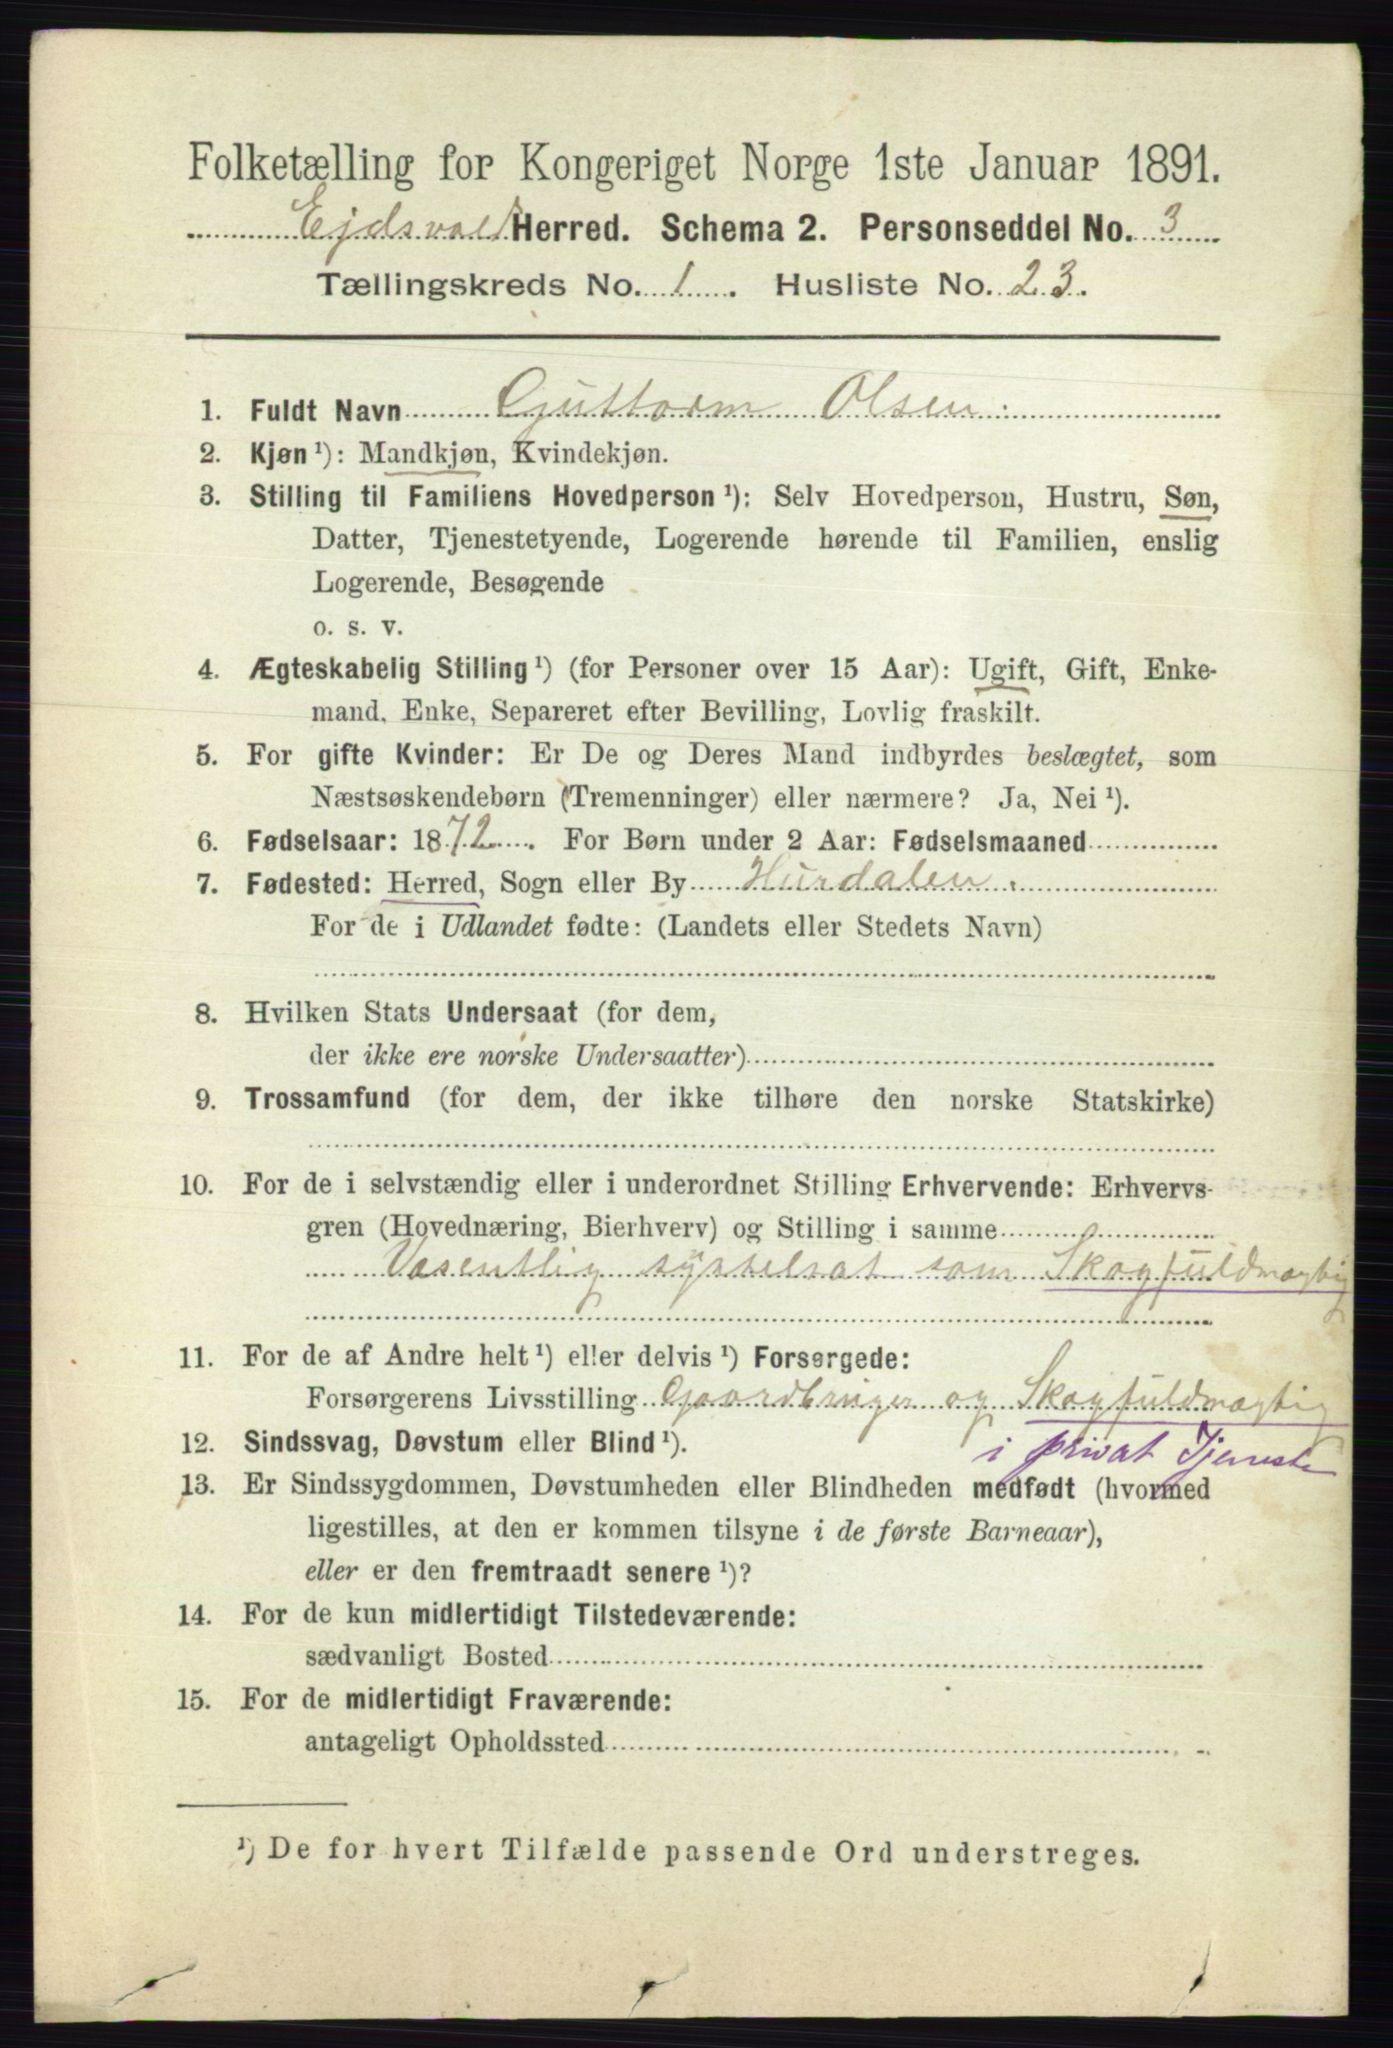 Folketælling for Kongeriget Norge 1ste Januar 1891.
Ejdsvold Herred. Schema 2. Personseddel No. 3
Tællingskreds No. 1. Husliste No. 23.
1. Fuldt Navn Guttorm Olsen.
2. Kjøn ¹): Mandkjøn, Kvindekjøn.
3. Stilling til Familiens Hovedperson ¹): Selv Hovedperson, Hustru, Søn,
Datter, Tjenestetyende, Logerende hørende til Familien, enslig
Logerende, Besøgende
o. s. v.
4. Ægteskabelig Stilling ¹) (for Personer over 15 Aar): Ugift, Gift, Enke-
mand, Enke, Separeret efter Bevilling, Lovlig fraskilt.
5. For gifte Kvinder: Er De og Deres Mand indbyrdes beslægtet, som
Næstsøskendebørn (Tremenninger) eller nærmere? Ja, Nei ¹).
6. Fødselsaar: 1872. For Børn under 2 Aar: Fødselsmaaned
7. Fødested: Herred, Sogn eller By Hurdalen.
For de i Udlandet fødte: (Landets eller Stedets Navn)
8. Hvilken Stats Undersaat (for dem,
der ikke ere norske Undersaatter)
9. Trossamfund (for dem, der ikke tilhøre den norske Statskirke)
10. For de i selvstændig eller i underordnet Stilling Erhvervende: Erhvervs-
gren (Hovednæring, Bierhverv) og Stilling i samme
Væsentlig sysselsat som Skogfuldmægtig
11. For de af Andre helt ¹) eller delvis ¹) Forsørgede:
Forsørgerens Livsstilling Gaardbruger og Skogfuldmægtig
i privat Tjeneste
12. Sindssvag, Døvstum eller Blind ¹).
13. Er Sindssygdommen, Døvstumheden eller Blindheden medfødt (hvormed
ligestilles, at den er kommen tilsyne i de første Barneaar),
eller er den fremtraadt senere ¹)?
14. For de kun midlertidigt Tilstedeværende:
sædvanligt Bosted
15. For de midlertidigt Fraværende:
antageligt Opholdssted
¹) De for hvert Tilfælde passende Ord understreges.